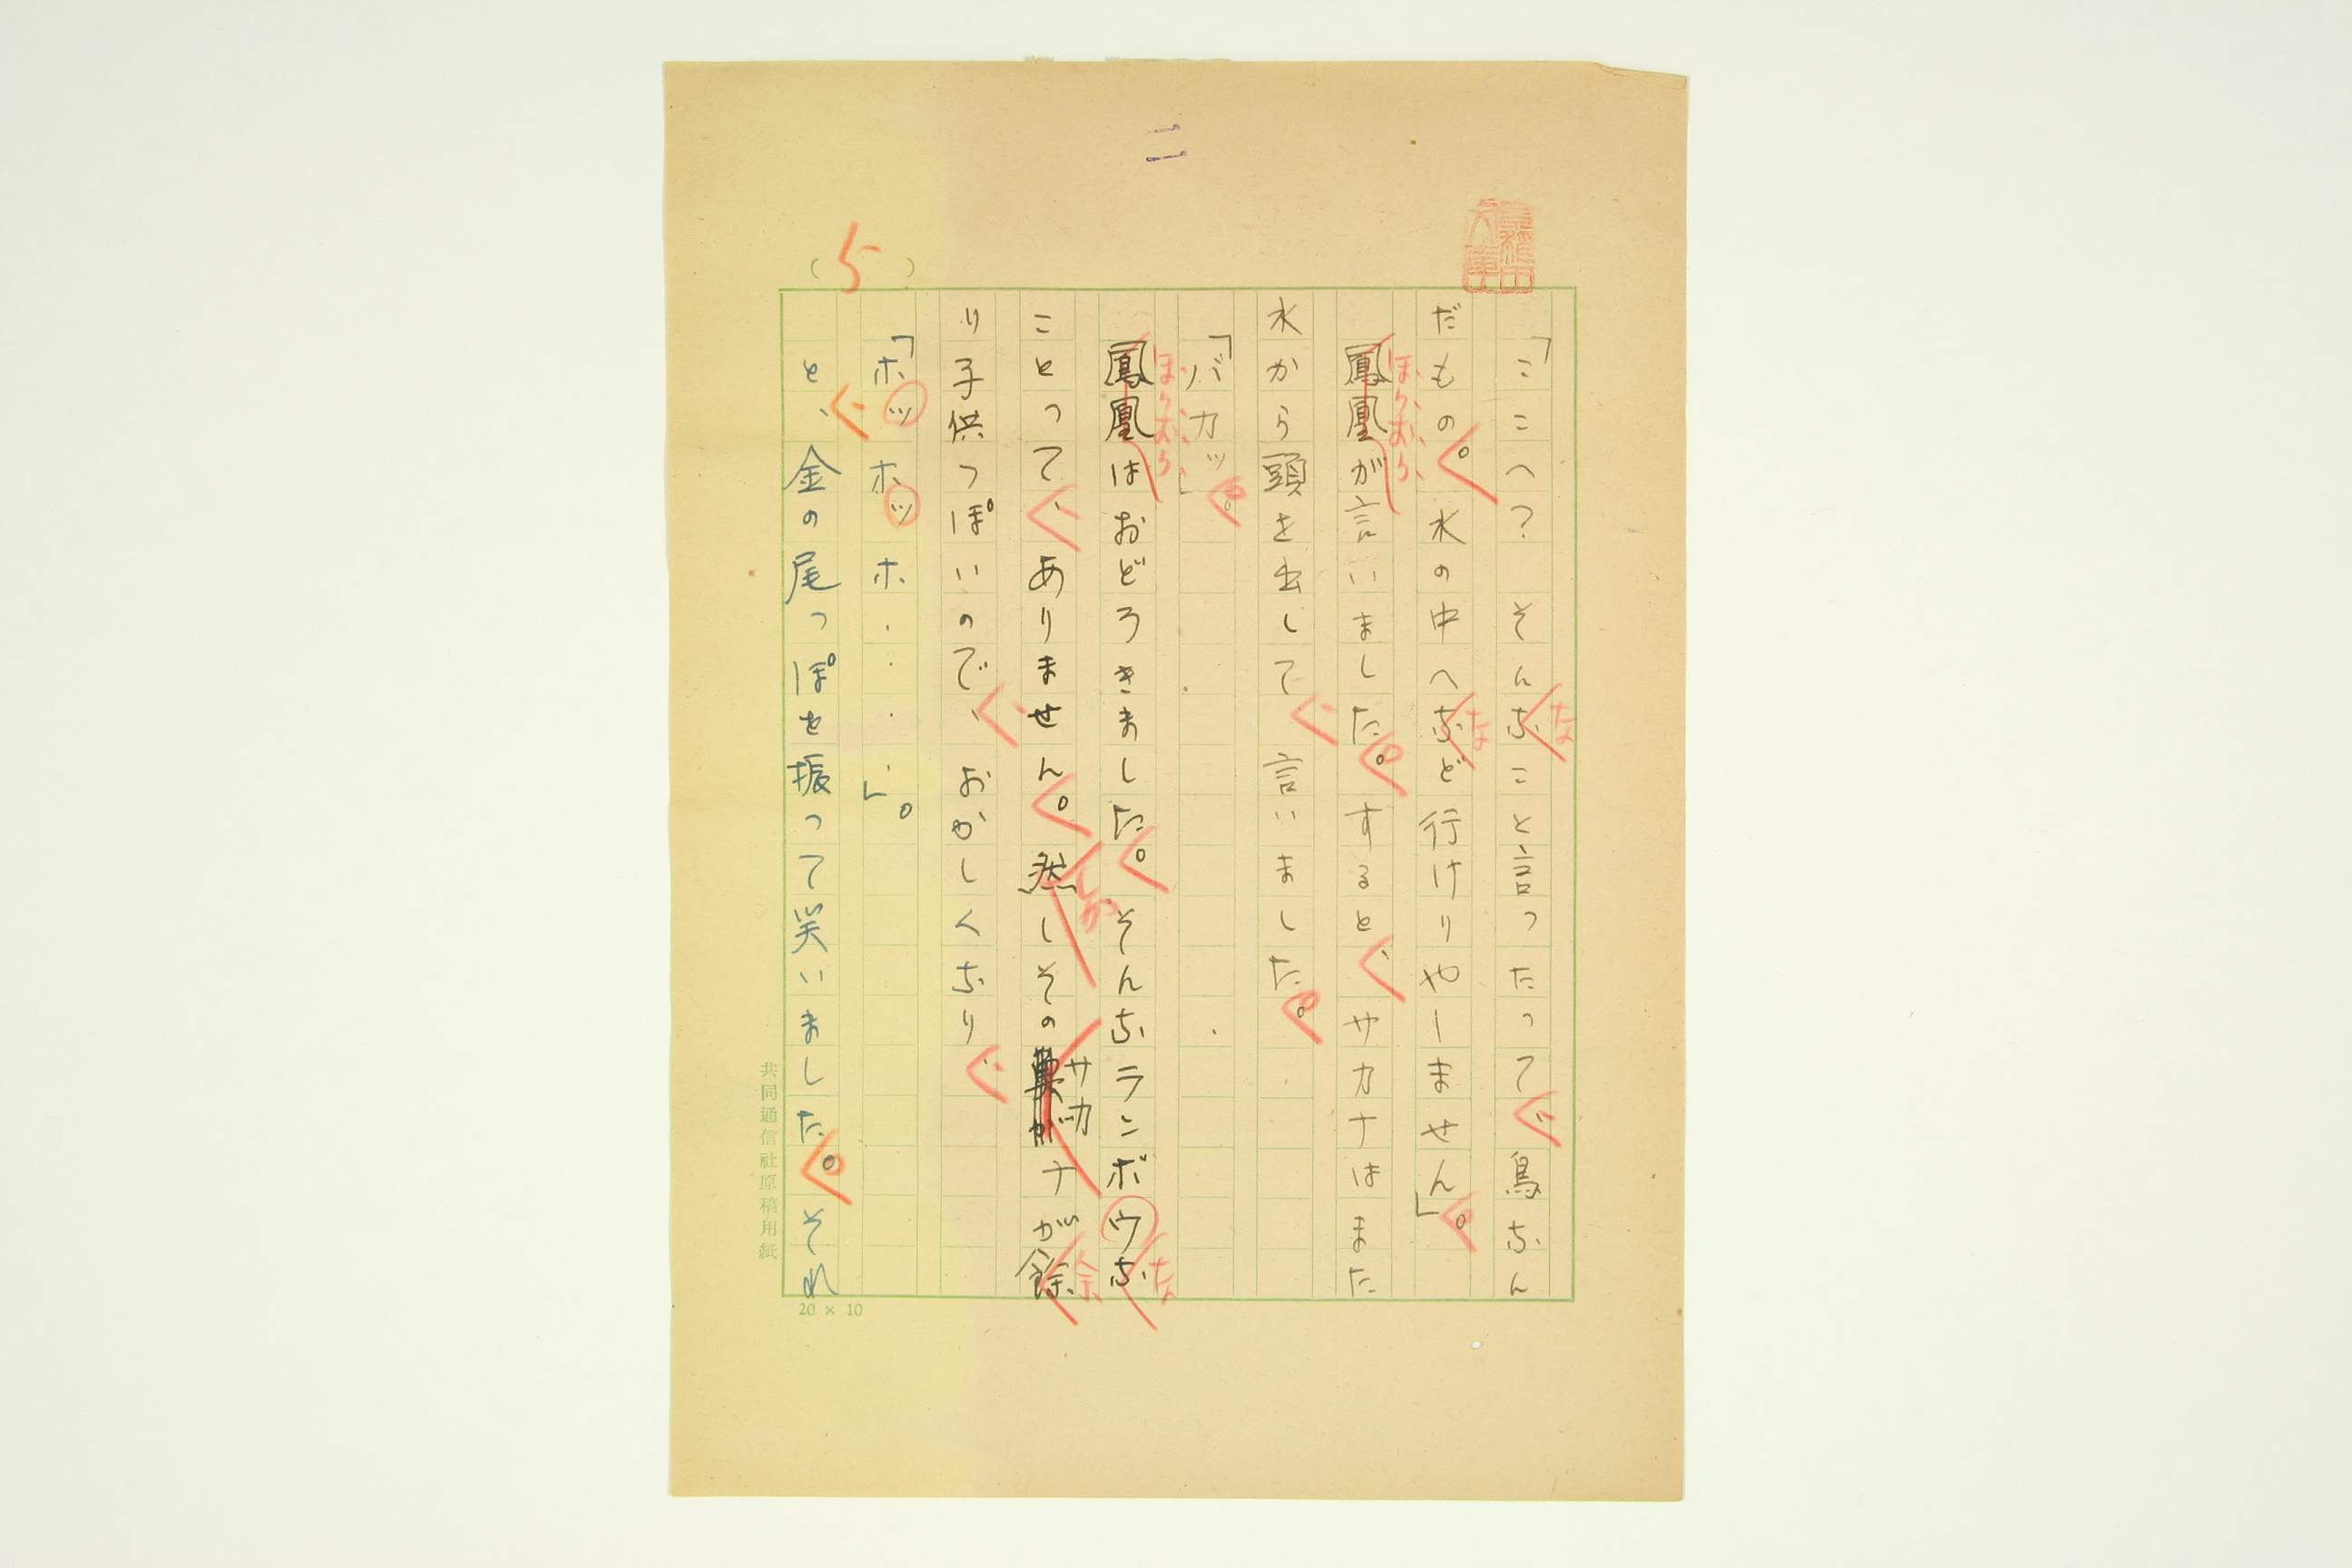 二
(5)
「ここへ?　そんなこと言ったって、鳥なん
だもの。水の中へなど行けりやーません」。
鳳凰が言いました。すると、サカナはまた
水から頭を出して、言いました。
「バカッ」。
鳳凰はおどろきました。そんなランボウな
ことって、ありません。然しそのサカナが餘
り子供っぽいので、おかしくなり、
「ホッホッホ・・・・」。
と、金の尾っぽを振って笑いました。それ
な
な
ほうおう
ほうおう
な
しか
余
共同通信社原稿用紙
20 × 10